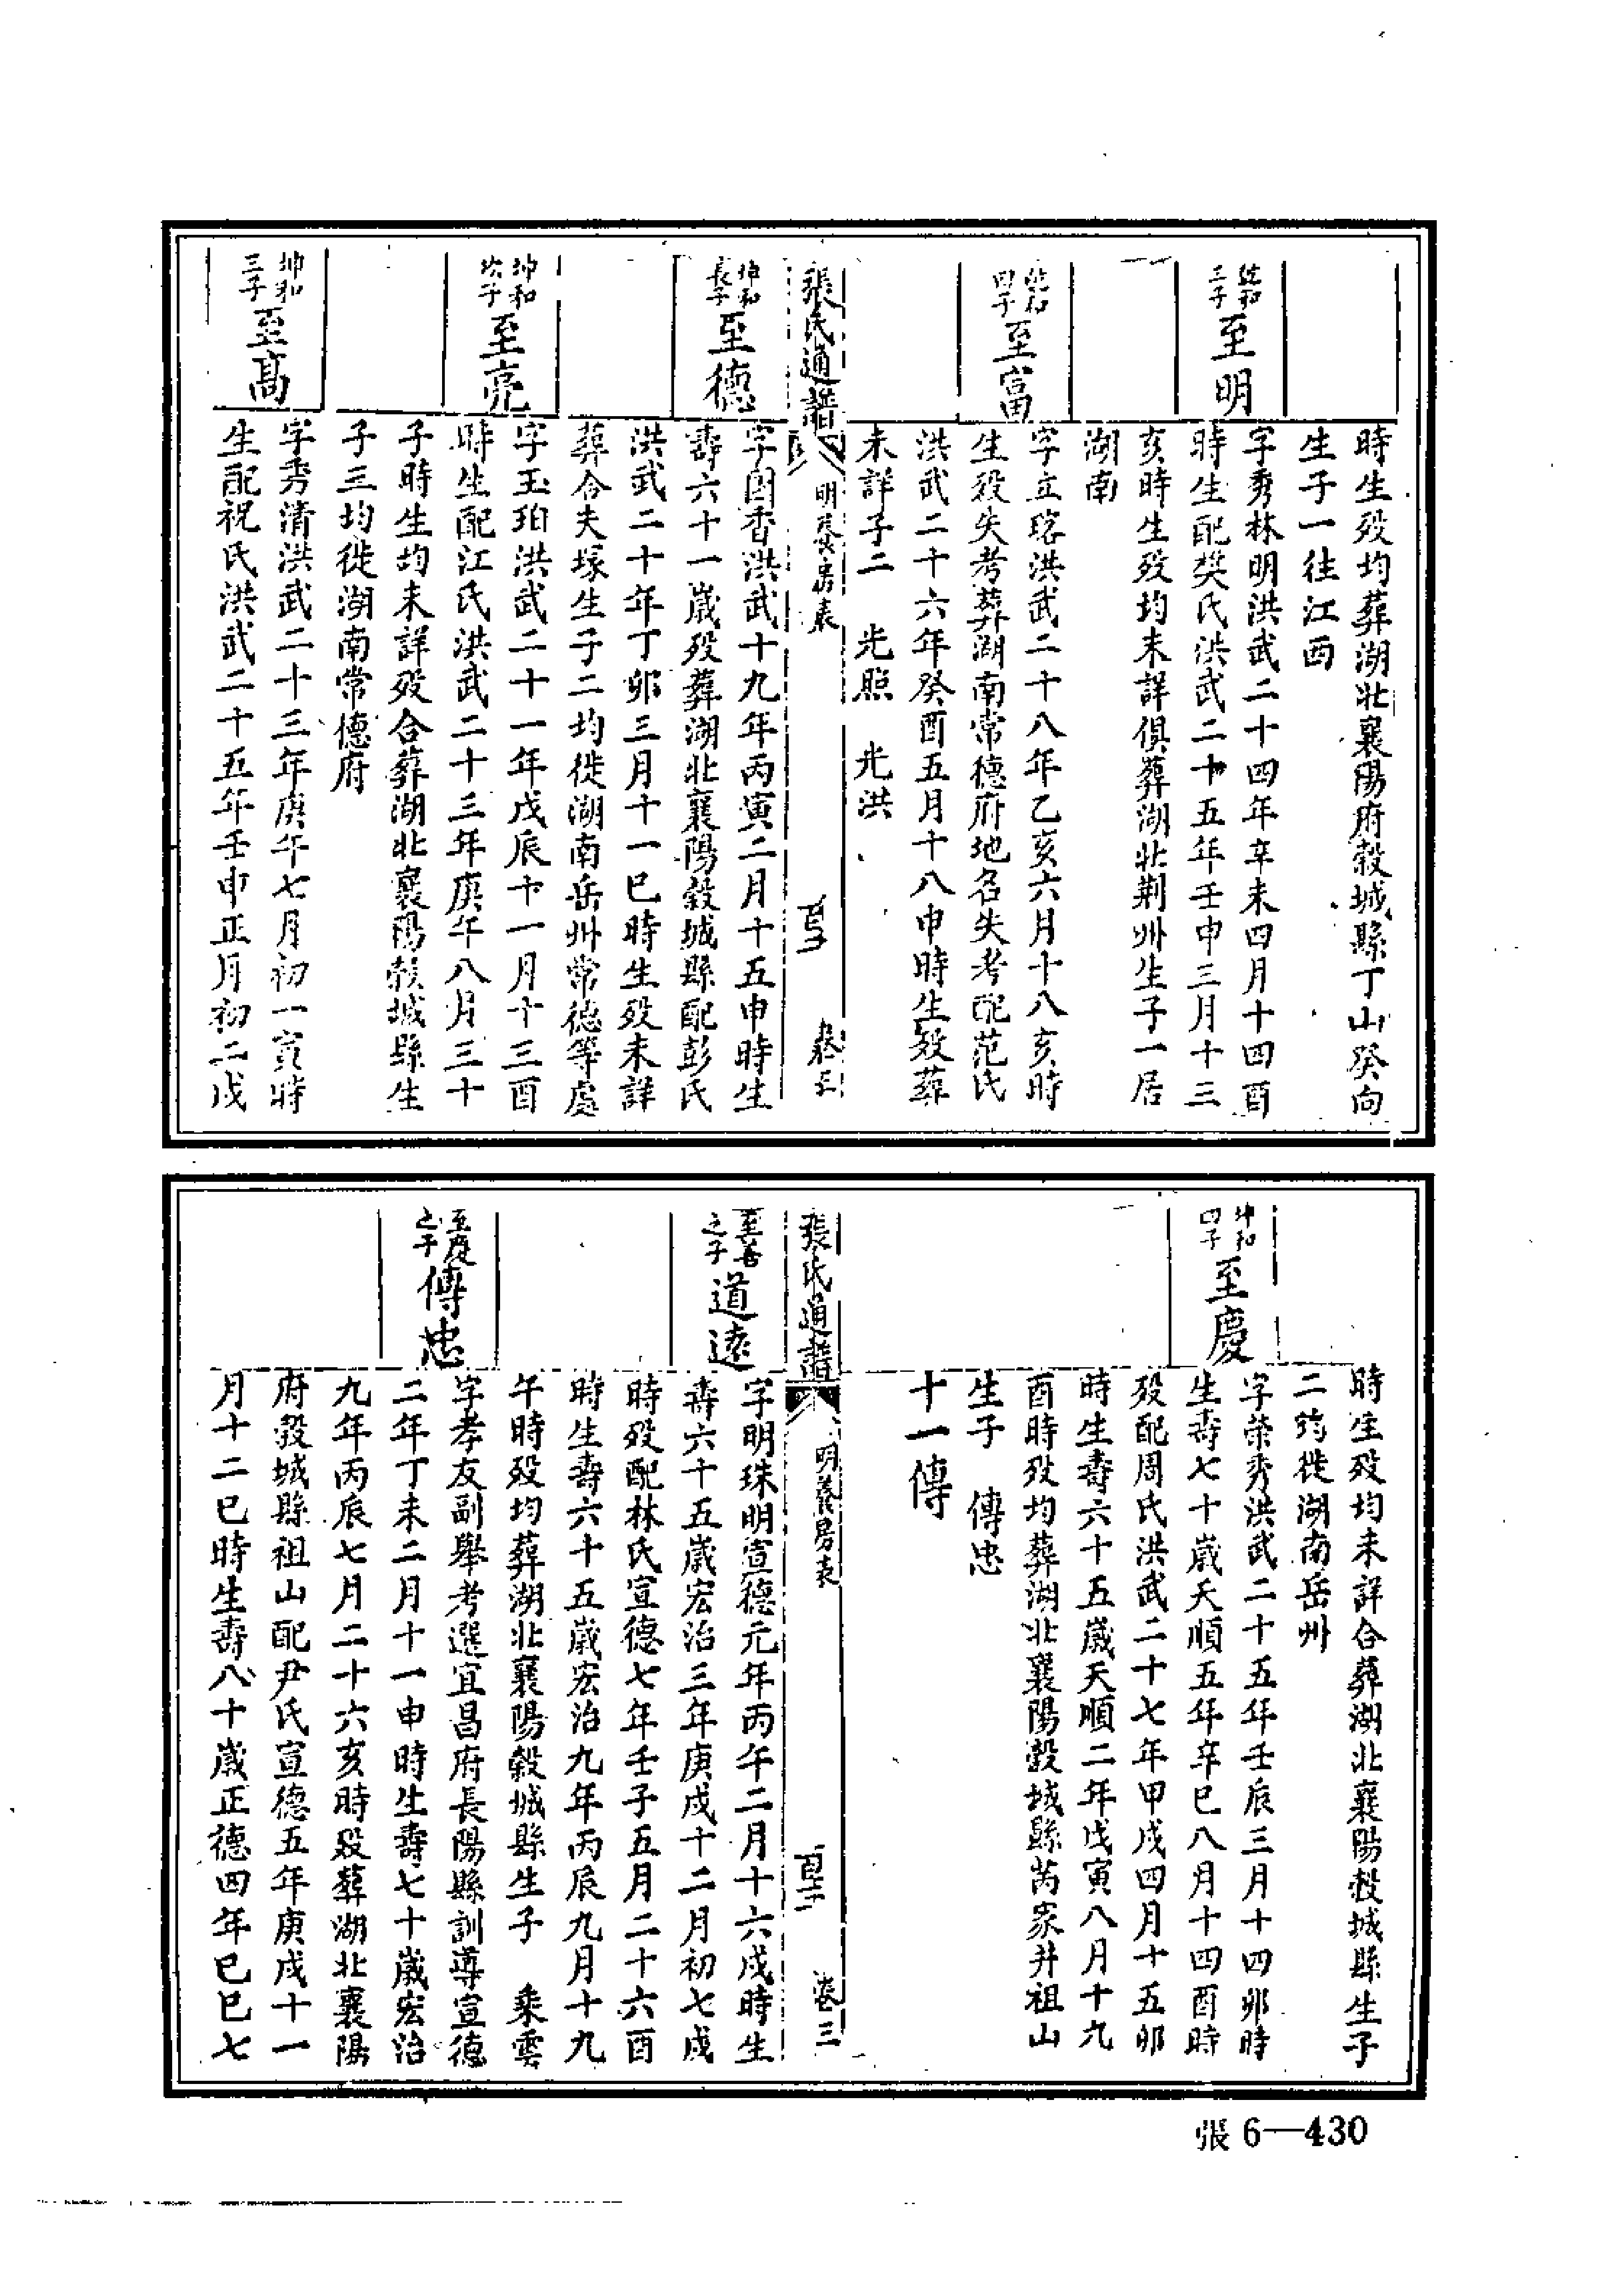 時生歿均葬湖北襄陽府穀城縣丁山癸向
生子一往江西
三子
至明
字秀林明洪武二十四年辛未四月十四酉
時生配樊氏洪武二十五年壬申三月十三
亥時生歿均未詳俱葬湖北荆州生子一居
湖南
四子
至富
字立珞洪武二十八年乙亥六月十八亥時
生歿失考葬湖南常德府地名失考配范氏
洪武二十六年癸酉五月十八申時生歿葬
未詳子二 光照 光洪
張氏通譜
明 房表
卷三
坤和
長子
至德
字國香洪武十九年丙寅二月十五申時生
壽六十一歲歿葬湖北襄陽穀城縣配彭氏
洪武二十年丁卯三月十一巳時生歿未詳
葬合夫塚生子二均徙湖南岳州常德等處
坤和
次子
至亮
字玉珀洪武二十一年戊辰十一月十三酉
時生配江氏洪武二十三年庚午八月三十
子時生均未詳歿合葬湖北襄陽穀城縣生
子三均徙湖南常德府
坤和
三子
至高
字秀清洪武二十三年庚午七月初一寅時
生配祝氏洪武二十五年壬申正月初二戌
時生歿均未詳合葬湖北襄陽穀城縣生子
二均徙湖南岳州
坤和
四子
至慶
字榮秀洪武二十五年壬辰三月十四卯時
生壽七十歲天順五年辛巳八月十四酉時
歿配周氏洪武二十七年甲戌四月十五卯
時生壽六十五歲天順二年戊寅八月十九
酉時歿均葬湖北襄陽穀城縣芮家井祖山
生子 傳忠
十一傳
張氏通譜
明 房表
卷三
至善
之子
道遠
字明珠明宣德元年丙午二月十六戌時生
壽六十五歲宏治三年庚戌十二月初七戌
時歿配林氏宣德七年壬子五月二十六酉
時生壽六十五歲宏治九年丙辰九月十九
午時歿均葬湖北襄陽穀城縣生子 乘雲
至慶
之子
傳忠
字孝友副舉考選宜昌府長陽縣訓導宣德
二年丁未二月十一申時生壽七十歲宏治
九年丙辰七月二十六亥時歿葬湖北襄陽
府穀城縣祖山配尹氏宣德五年庚戌十一
月十二巳時生壽八十歲正德四年己巳七
張 6—430